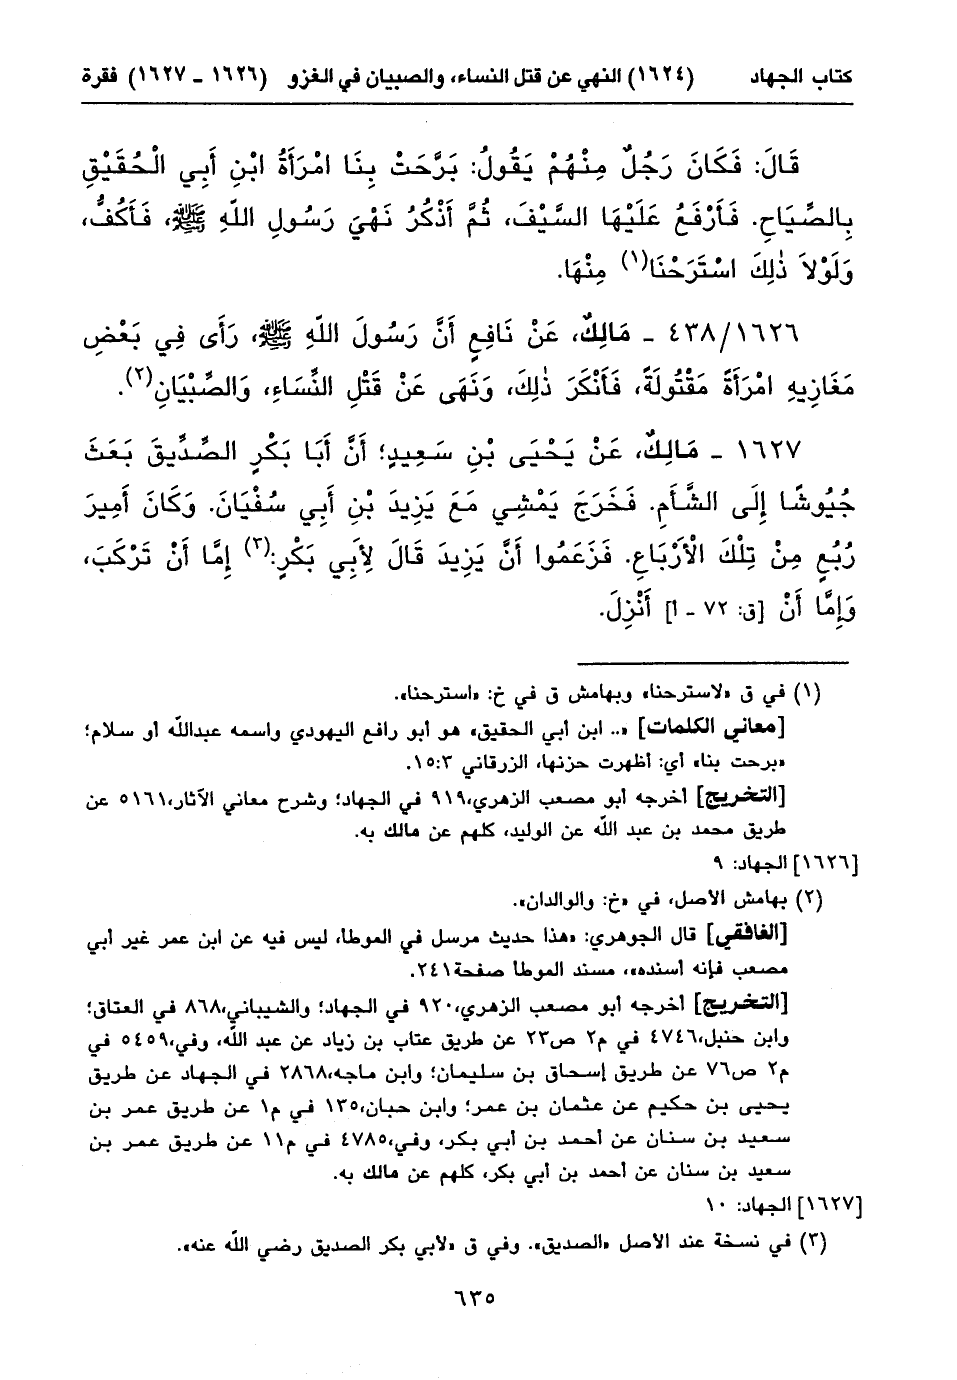 كتاب الجهاد (١٦٢٤) النهي عن قتل النساء، والصبيان في الغزو (١٦٢٦ - ١٦٢٧) فقرة
قَالَ: فَكَانَ رَجُلٌ مِنْهُمْ يَقُولُ: بَرَّحَتْ بِنَا امْرَأَةُ ابْنِ أَبِي الْحُقَيْقِ
بِالصِّيَاحِ. فَأَرْفَعُ عَلَيْهَا السَّيْفَ، ثُمَّ أَذْكُرُ نَهْيَ رَسُولِ اللّهِ ﷺ، فَأَكُفُّ،
وَلَوْلاَ ذٰلِكَ اسْتَرَحْنَا(١) مِنْهَا.
٤٣٨/١٦٢٦ - مَالِكٌ، عَنْ نَافِعٍ أَنَّ رَسُولَ اللّهِ ﷺ، رَأَى فِي بَعْضِ
مَغَازِيهِ امْرَأَةً مَقْتُولَةً، فَأَنْكَرَ ذٰلِكَ، وَنَهَى عَنْ قَتْلِ النِّسَاءِ، وَالصِّبْيَانِ(٢).
١٦٢٧ - مَالِكٌ، عَنْ يَحْيَى بْنِ سَعِيدٍ؛ أَنَّ أَبَا بَكْرٍ الصِّدِّيقَ بَعَثَ
جُيُوشًا إِلَى الشَّأمِ. فَخَرَجَ يَمْشِي مَعَ يَزِيدَ بْنِ أَبِي سُفْيَانَ. وَكَانَ أَمِيرَ
رُبُعٍ مِنْ تِلْكَ الْأَرْبَاعِ. فَزَعَمُوا أَنَّ يَزِيدَ قَالَ لِأَبِي بَكْرٍ:(٣) إِمَّا أَنْ تَرْكَبَ،
وَإِمَّا أَنْ [ق: ٧٢ - أ] أَنْزِلَ.
(١) في ق «لاسترحنا» وبهامش ق في خ: «استرحنا».
[معاني الكلمات] «.. ابن أبي الحقيق» هو أبو رافع اليهودي واسمه عبدالله أو سلام؛
«برحت بنا» أي: أظهرت حزنها، الزرقاني ١٥:٣.
[التخريج] أخرجه أبو مصعب الزهري،٩١٩ في الجهاد؛ وشرح معاني الآثار،٥١٦١ عن
طريق محمد بن عبد الله عن الوليد، كلهم عن مالك به.
[١٦٢٦] الجهاد: ٩
(٢) بهامش الأصل، في «خ: والوالدان».
[الغافقي] قال الجوهري: «هذا حديث مرسل في الموطأ، ليس فيه عن ابن عمر غير أبي
مصعب فإنه أسنده»، مسند الموطأ صفحة٢٤١.
[التخريج] أخرجه أبو مصعب الزهري،٩٢٠ في الجهاد؛ والشيباني،٨٦٨ في العتاق؛
وابن حنبل،٤٧٤٦ في م٢ ص٢٣ عن طريق عتاب بن زياد عن عبد الله، وفي،٥٤٥٩ في
م٢ ص٧٦ عن طريق إسحاق بن سليمان؛ وابن ماجه،٢٨٦٨ في الجهاد عن طريق
يحيى بن حكيم عن عثمان بن عمر؛ وابن حبان،١٣٥ في م١ عن طريق عمر بن
سعيد بن سنان عن أحمد بن أبي بكر، وفي،٤٧٨٥ في م١١ عن طريق عمر بن
سعيد بن سنان عن أحمد بن أبي بكر، كلهم عن مالك به.
[١٦٢٧] الجهاد: ١٠
(٣) في نسخة عند الأصل «الصديق». وفي ق «لأبي بكر الصديق رضي الله عنه».
٦٣٥